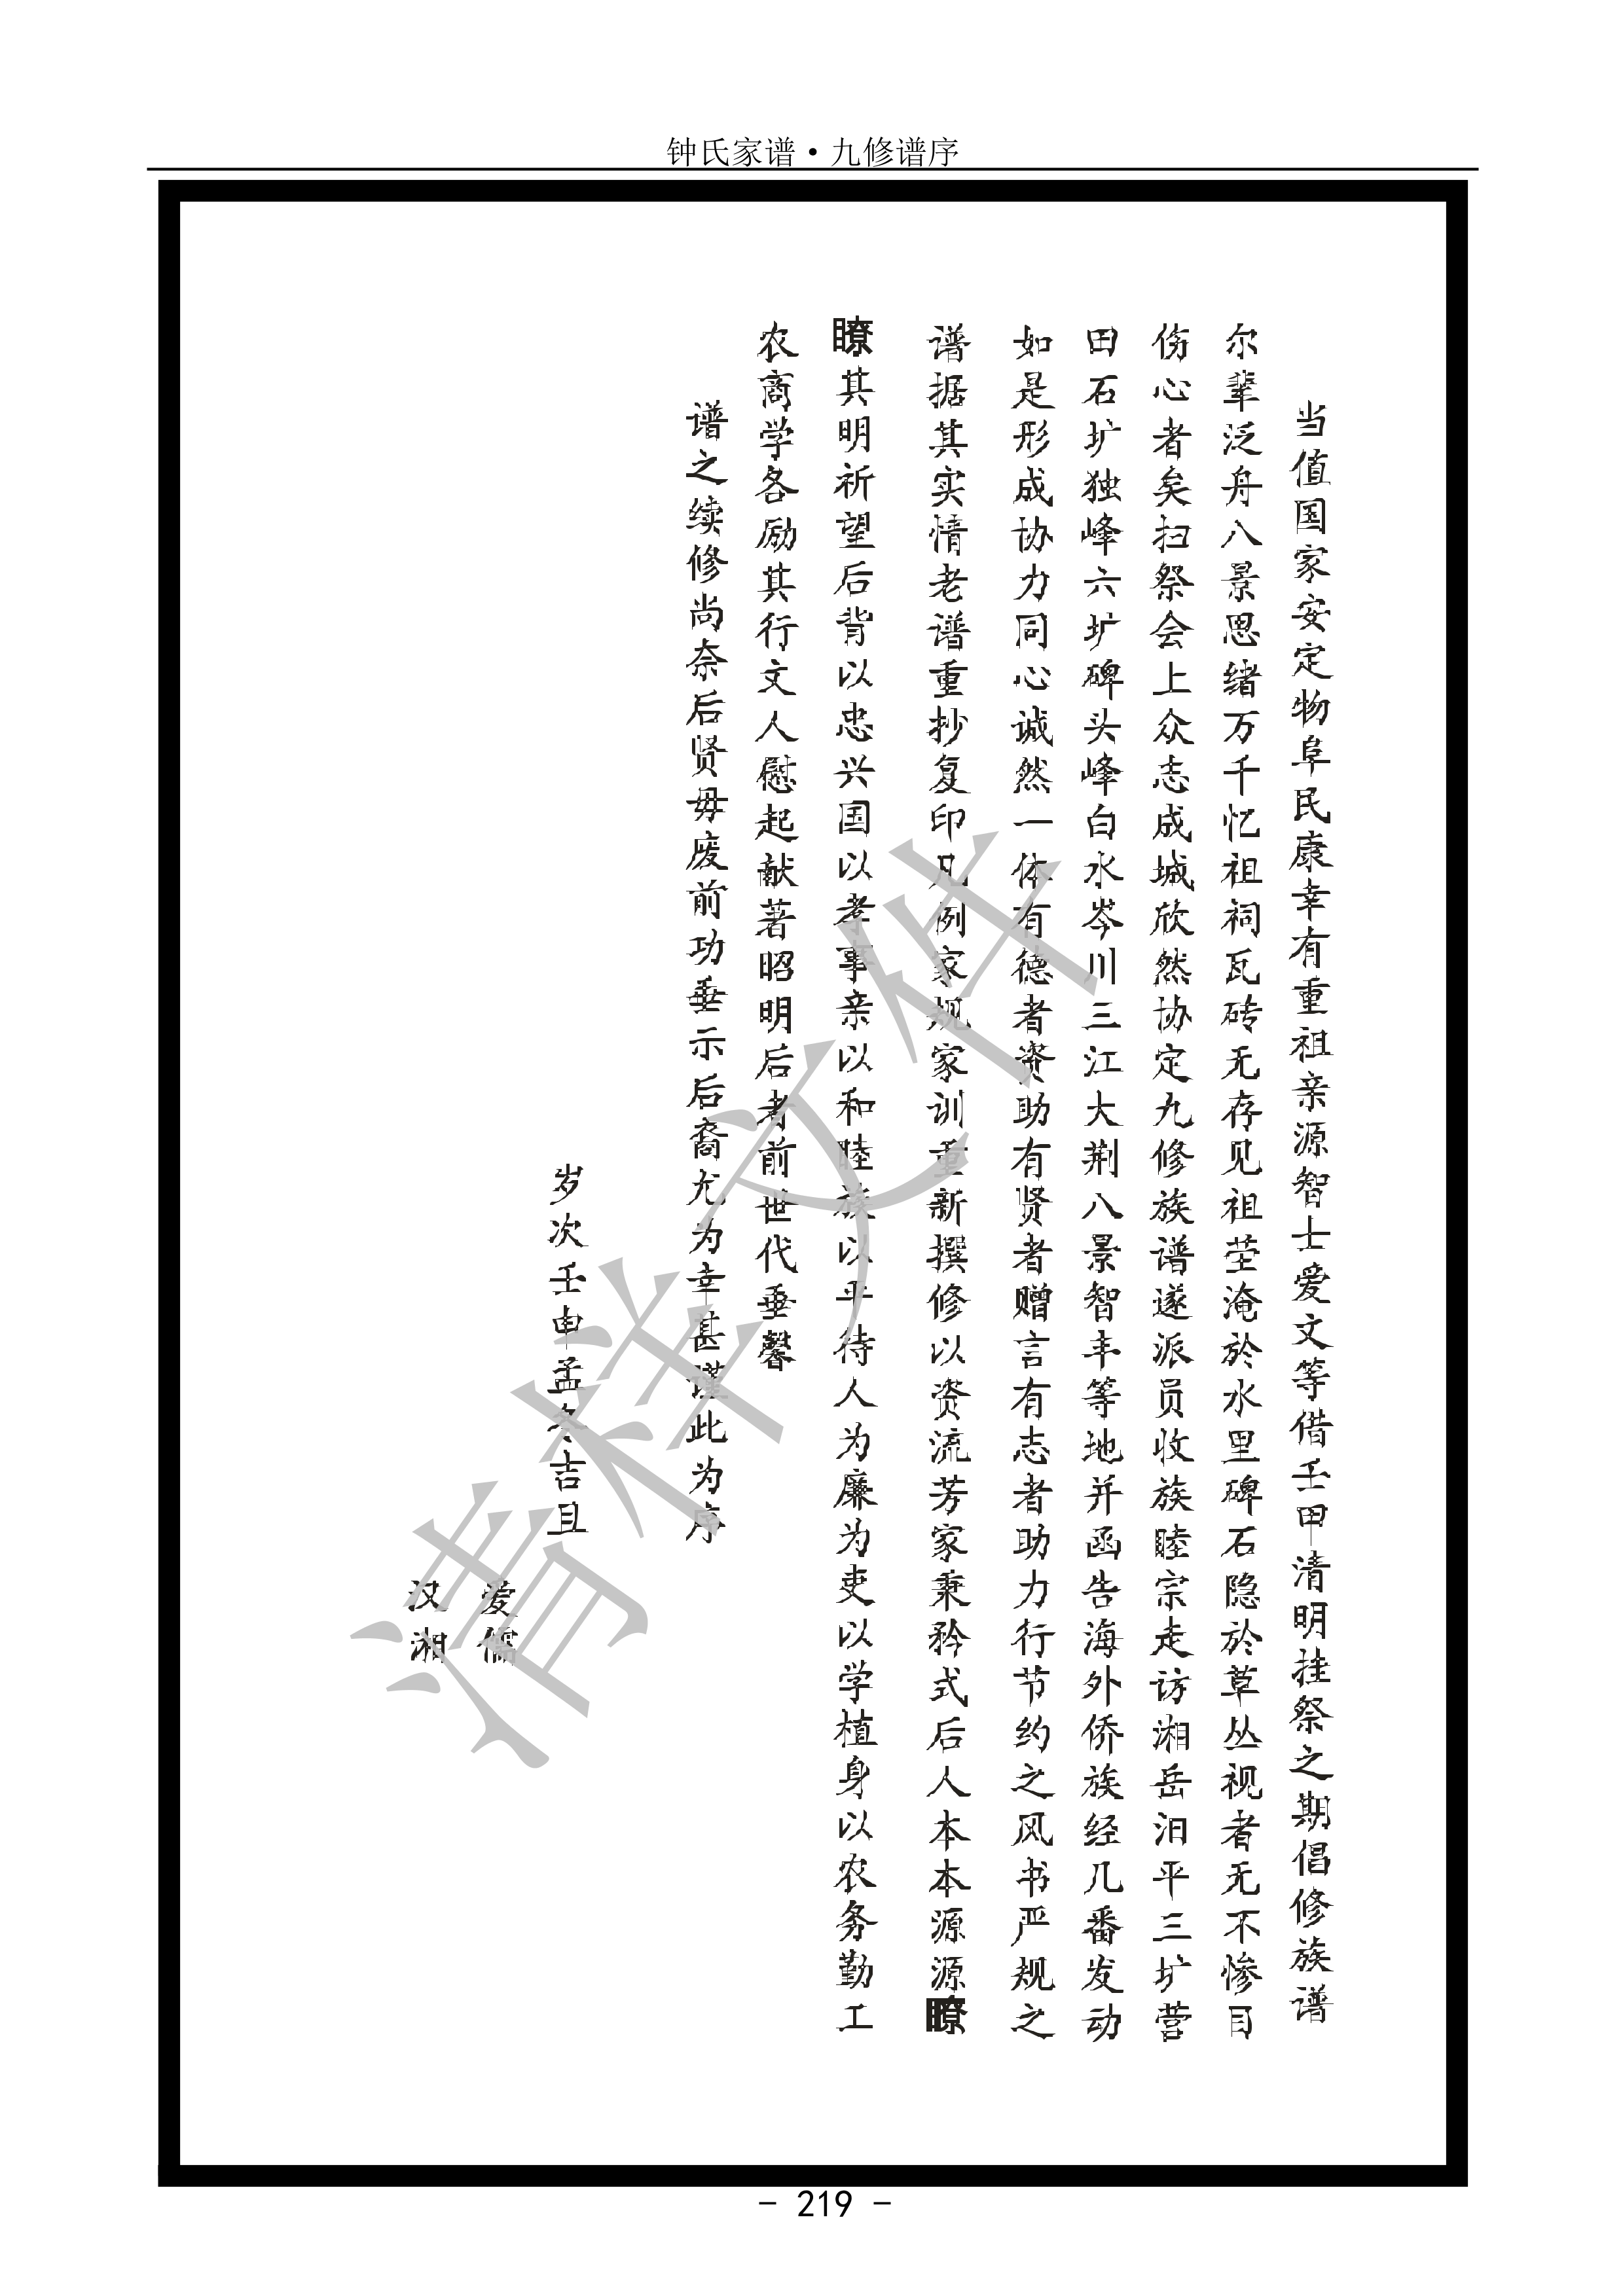 钟氏家谱·九修谱序
当值国家安定物阜民康幸有重祖亲源智士爱文等借壬申清明挂祭之期倡修族谱
尔辈泛舟八景思绪万千忆祖祠瓦砖无存见祖茔淹於水里碑石隐於草丛视者无不惨目
伤心者矣扫祭会上众志成城欣然协定九修族谱遂派员收族睦宗走访湘岳汨平三圹营
田石圹独峰六圹碑头峰白水岑川三江大荆八景智丰等地并函告海外侨族经几番发动
如是形成协力同心诚然一体有德者资助有贤者赠言有志者助力行节约之风书严规之
谱据其实情老谱重抄复印凡例家规家训重新撰修以资流芳家乘矜式后人本本源源瞭
瞭其明祈望后背以忠兴国以孝事亲以和睦族以平待人为廉为吏以学植身以农务勤工
农商学各励其行文人慰起献著昭明后者前世代垂馨
谱之续修尚奈后贤毋废前功垂示后裔尤为幸甚谨此为序
岁次壬申孟冬吉旦
爱儒
汉湘
清样文件
- 219 -